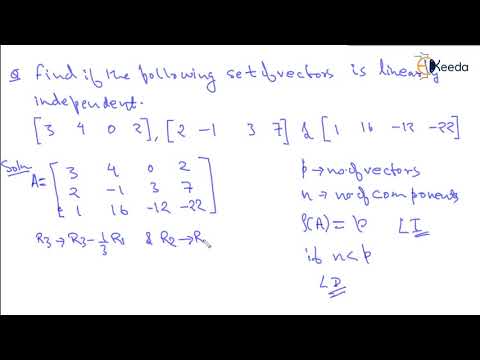 Keeda
Q Find if the following set of vectors is linearly
independent.
[3 4 0 2], [2 -1 3 7] & [1 16 -12 -22]
Soln
A = [3 4 0 2
2 -1 3 7
1 16 -12 -22]
R3 → R3 - 1/3 R1 & R2 → R
p → no of vectors
n → no of components
ρ(A) = p LI
if n < p
LD